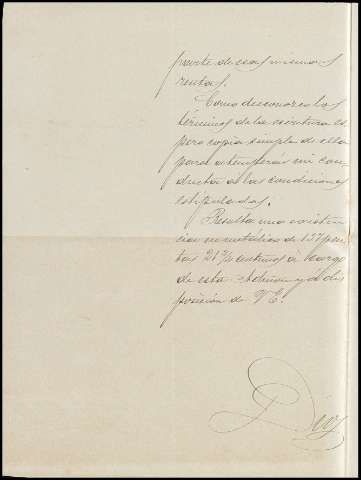 parte de esas mismas
rentas.
Como desconozco los
términos de la escritura es
pero copia simple de ella
para atemperar mi con
ducta a las condiciones
estipuladas.
Resulta una existen
cia en metálico de 137 pese
tas 21 céntimos a cargo
de esta Admon y á dis
posición de V. E.
Dios